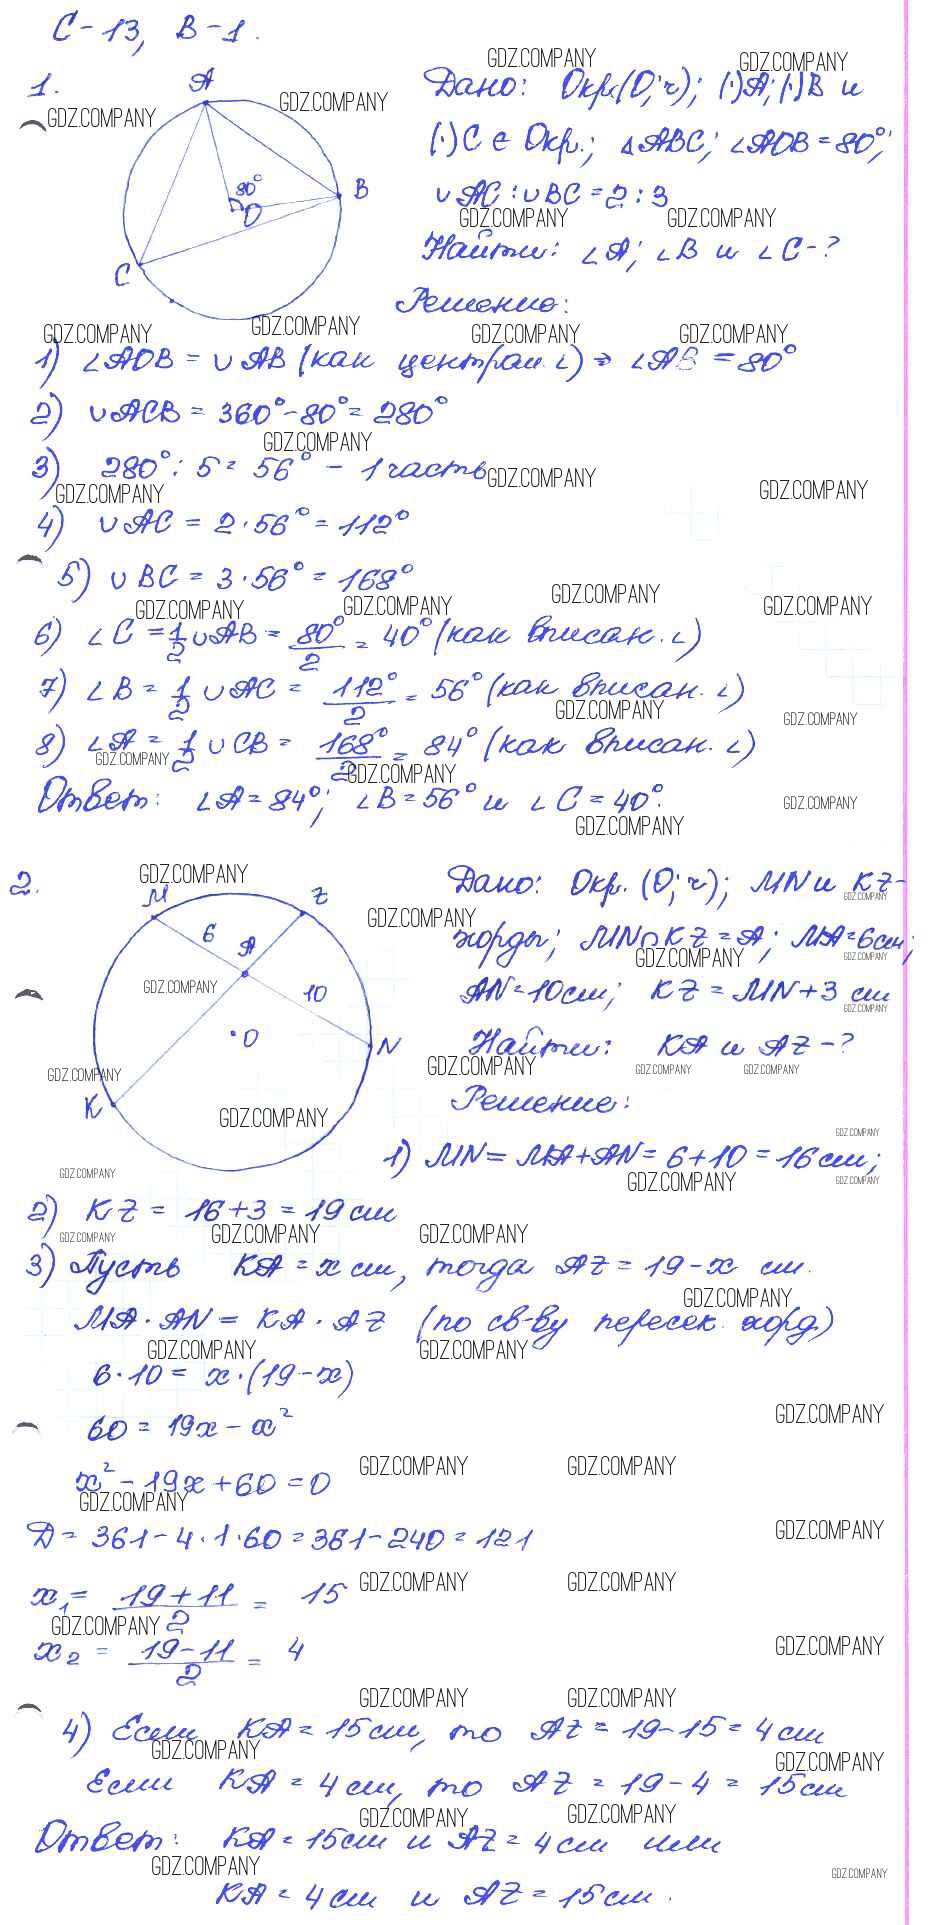 С-13, В-1.
1.
A
B
C
O
80°
Дано: Окр.(O; r); (·)A; (·)B и
(·)C ∈ Окр.; △ABC; ∠AOB = 80°;
∪AC : ∪BC = 2 : 3
Найти: ∠A; ∠B и ∠C - ?
Решение:
1) ∠AOB = ∪AB (как централ. ∠) ⇒ ∠AB = 80°
2) ∪ACB = 360° - 80° = 280°
3) 280° : 5 = 56° - 1 часть
4) ∪AC = 2 · 56° = 112°
5) ∪BC = 3 · 56° = 168°
6) ∠C = 1/2 ∪AB = 80°/2 = 40° (как вписан. ∠)
7) ∠B = 1/2 ∪AC = 112°/2 = 56° (как вписан. ∠)
8) ∠A = 1/2 ∪CB = 168°/2 = 84° (как вписан. ∠)
Ответ: ∠A = 84°; ∠B = 56° и ∠C = 40°.
2.
M
Z
6
A
10
O
N
K
Дано: Окр. (O; r); MN и KZ -
хорды; MN ∩ KZ = A; MA = 6 см;
AN = 10 см; KZ = MN + 3 см
Найти: KA и AZ - ?
Решение:
1) MN = MA + AN = 6 + 10 = 16 см;
2) KZ = 16 + 3 = 19 см
3) Пусть KA = x см, тогда AZ = 19 - x см.
MA · AN = KA · AZ (по св-ву пересек. хорд)
6 · 10 = x · (19 - x)
60 = 19x - x²
x² - 19x + 60 = 0
D = 361 - 4 · 1 · 60 = 361 - 240 = 121
x₁ = (19 + 11)/2 = 15
x₂ = (19 - 11)/2 = 4
4) Если KA = 15 см, то AZ = 19 - 15 = 4 см
Если KA = 4 см, то AZ = 19 - 4 = 15 см
Ответ: KA = 15 см и AZ = 4 см или
KA = 4 см и AZ = 15 см.
GDZ.COMPANY